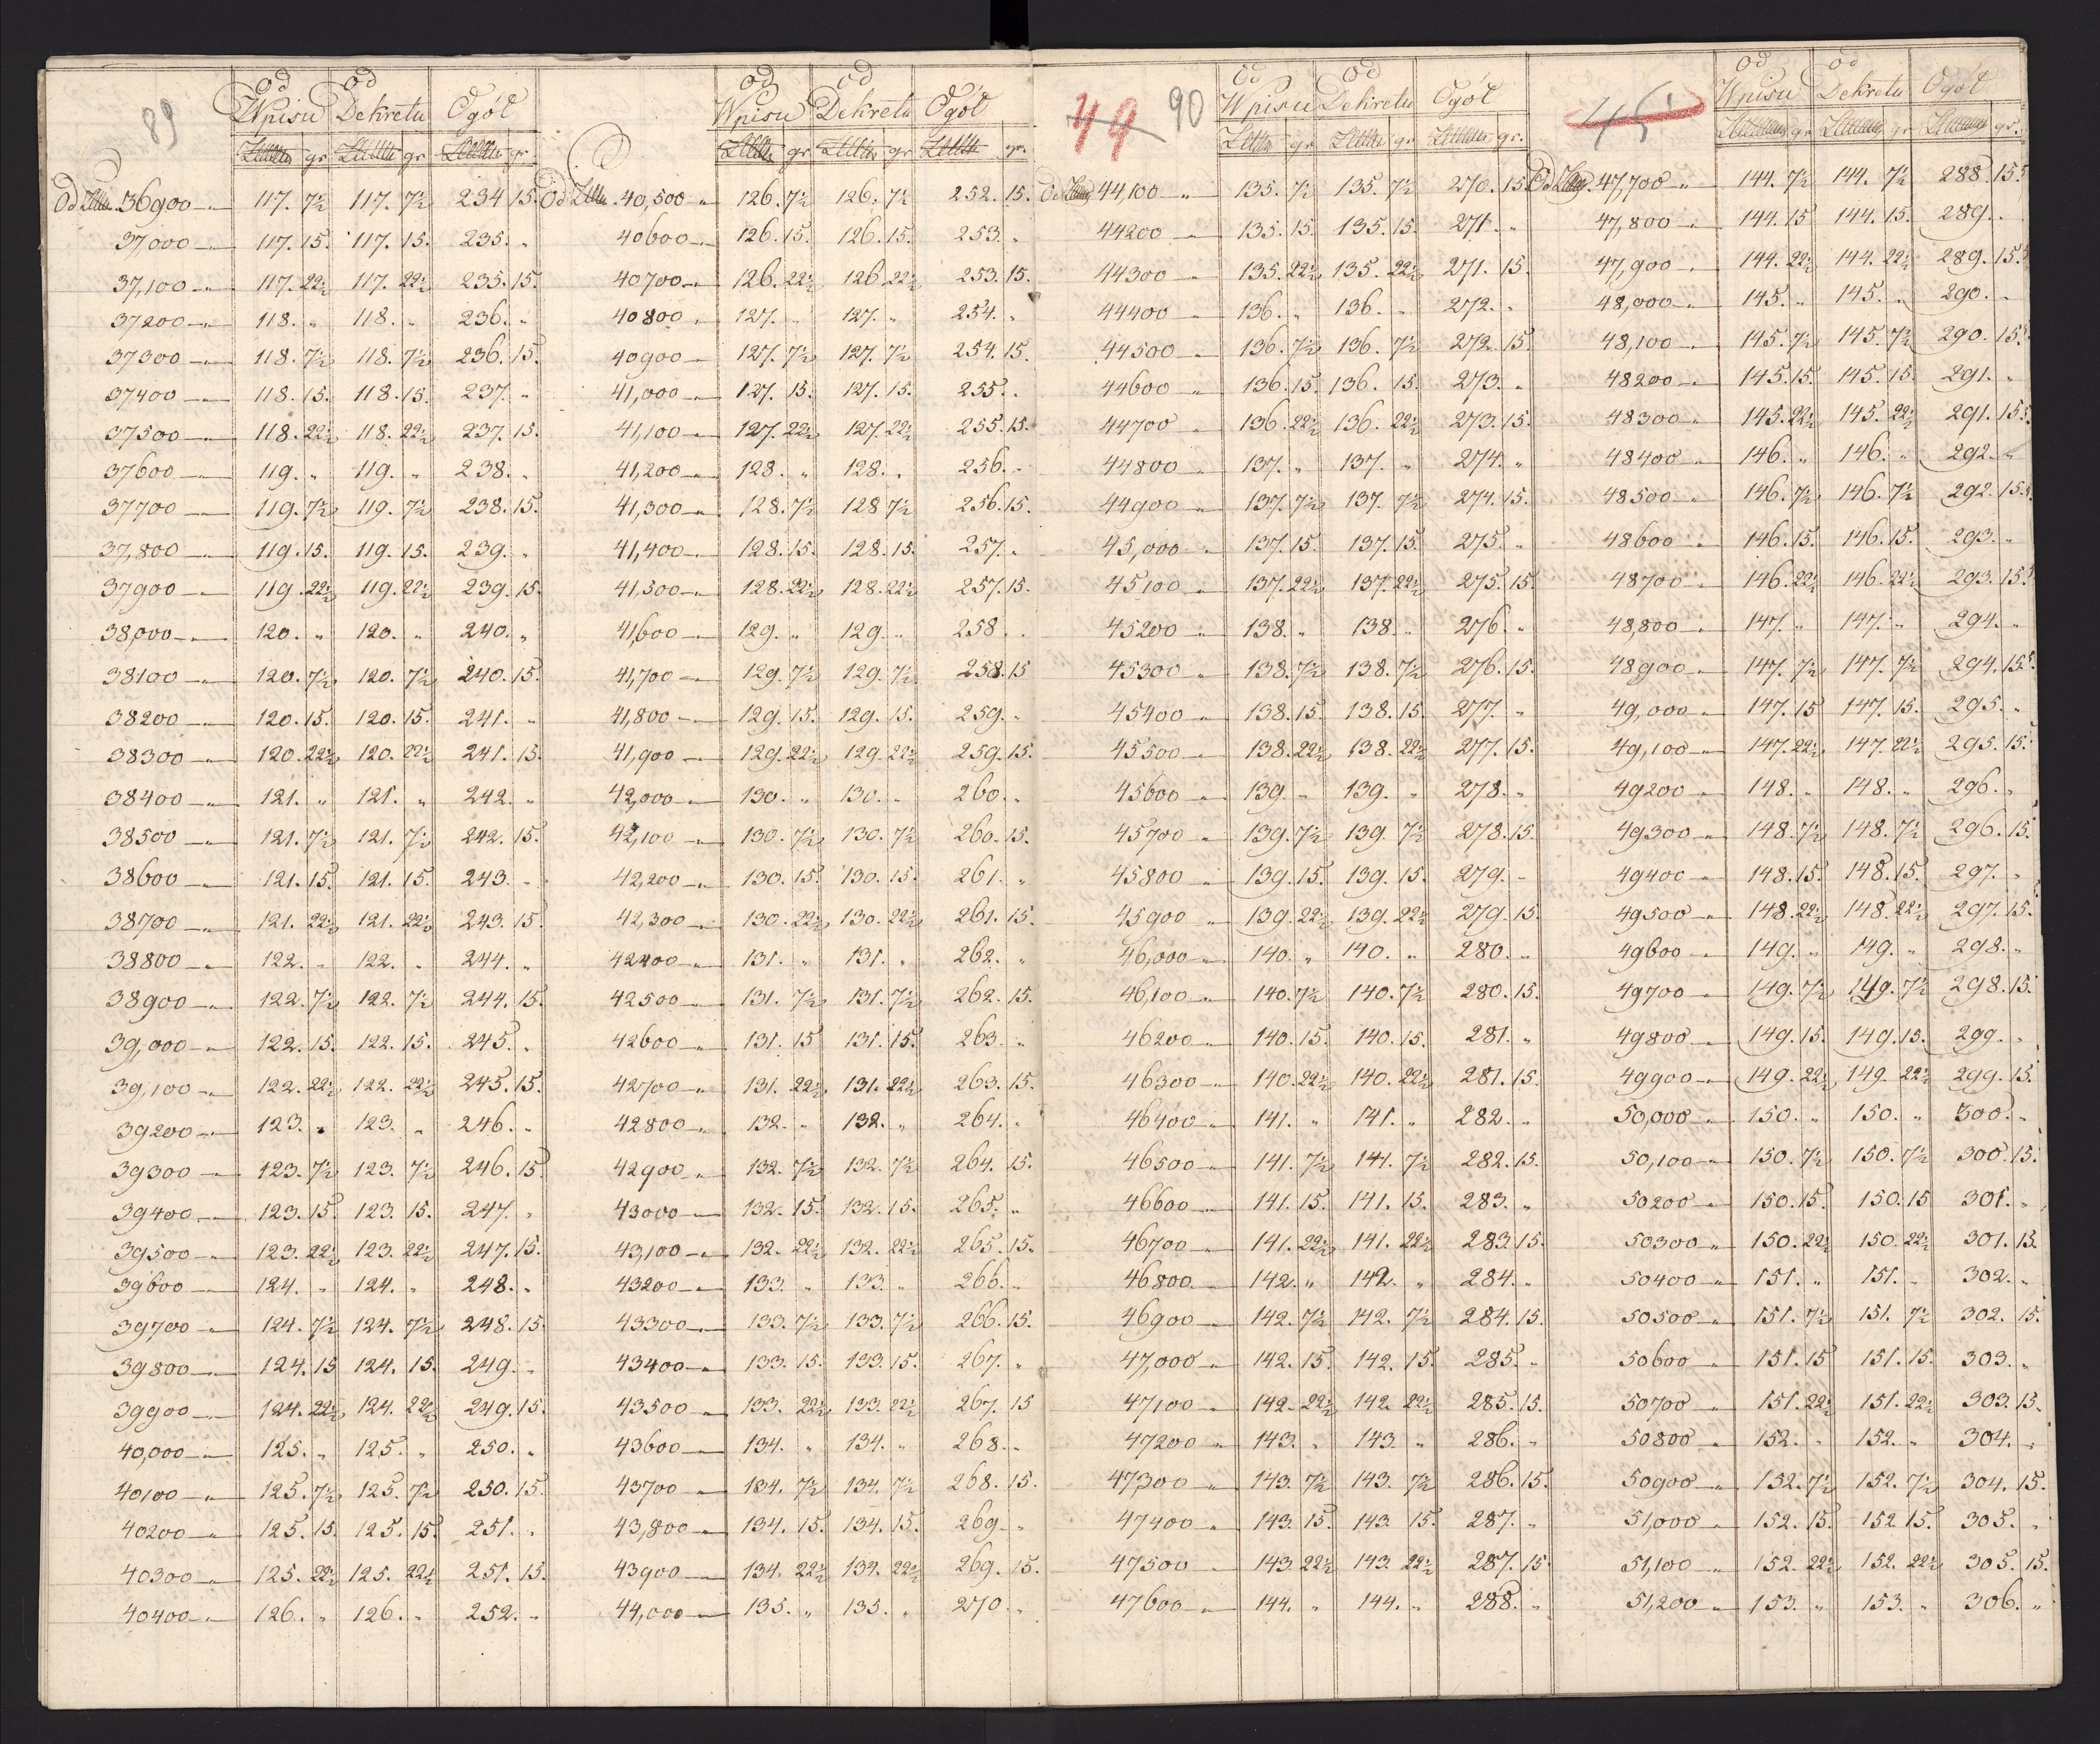 89
Od Wpisu Od Dekretu Ogół
gr gr gr
Od 36900 117. 7½ 117. 7½ 234 15.
37,000 117. 15. 117. 15. 235. „
37,100 117. 22½ 117. 22½ 235. 15.
37200 118. „ 118. „ 236. „
37300 118. 7½ 118. 7½ 236. 15.
37400 118. 15. 118. 15. 237. „
37500 118. 22½ 118. 22½ 237. 15.
37600 119. „ 119. „ 238. „
37700 119. 7½ 119. 7½ 238. 15.
37,800 119. 15. 119. 15. 239. „
37900 119. 22½ 119. 22½ 239. 15.
38,000 120. „ 120. „ 240. „
38100 120. 7½ 120. 7½ 240. 15.
38200 120. 15. 120. 15. 241. „
38300 120. 22½ 120. 22½ 241. 15.
38400 121. „ 121. „ 242. „
38500 121. 7½ 121. 7½ 242. 15.
38600 121. 15. 121. 15. 243. „
38700 121. 22½ 121. 22½ 243. 15.
38800 122. „ 122. „ 244. „
38900 122. 7½ 122. 7½ 244. 15.
39,000 122. 15. 122. 15. 245. „
39,100 122. 22½ 122. 22½ 245. 15.
39200 123. „ 123. „ 246. „
39300 123. 7½ 123. 7½ 246. 15.
39400 123. 15. 123. 15. 247. „
39500 123. 22½ 123. 22½ 247. 15.
39600 124. „ 124. „ 248. „
39700 124. 7½ 124. 7½ 248. 15.
39800 124. 15 124. 15. 249. „
39900 124. 22½ 124. 22½ 249. 15.
40,000 125. „ 125. „ 250. „
40100 125. 7½ 125. 7½ 250. 15.
40200 125. 15. 125. 15. 251. „
40300 125. 22½ 125. 22½ 251. 15.
40400 126. „ 126. „ 252. „
Od Wpisu Od Dekretu Ogół
gr gr gr.
Od 40,500 126. 7½ 126. 7½ 252. 15.
40600 126. 15. 126. 15. 253. „
40700 126. 22½ 126 22½ 253. 15.
40800 127. „ 127. „ 254. „
40900 127. 7½ 127. 7½ 254. 15.
41,000 127. 15. 127. 15. 255. „
41,100 127. 22½ 127. 22½ 255. 15.
41,200 128. „ 128. „ 256. „
41,300 128. 7½ 128 7½ 256. 15.
41,400 128. 15. 128. 15. 257. „
41,500 128. 22½ 128. 22½ 257. 15.
41,600 129. „ 129. „ 258. „
41,700 129. 7½ 129. 7½ 258. 15
41,800 129. 15. 129. 15. 259. „
41,900 129. 22½ 129. 22½ 259. 15.
42,000 130. „ 130. „ 260. „
42,100 130. 7½ 130. 7½ 260. 15.
42,200 130. 15. 130. 15. 261. „
42,300 130. 22½ 130. 22½ 261. 15.
42400 131. „ 131. „ 262. „
42500 131. 7½ 131. 7½ 262. 15.
42600 131. 15 131. 15. 263. „
42700 131. 22½ 131. 22½ 263. 15.
42800 132. „ 132. „ 264. „
42900 132. 7½ 132. 7½ 264. 15.
43000 132. 15. 132. 15. 265. „
43,100 132. 22½ 132. 22½ 265. 15.
43200 133. „ 133. „ 266. „
43300 133. 7½ 133. 7½ 266. 15.
43400 133. 15. 133. 15. 267. „
43500 133. 22½ 133. 22½ 267. 15
43600 134. „ 134. „ 268. „
43700 134. 7½ 134. 7½ 268. 15.
43,800 134. 15. 134. 15. 269. „
43900 134. 22½ 134. 22½ 269. 15.
44,000 135. „ 135. „ 270. „
44 90
Od Wpisu Od Dekretu Ogół
gr. gr gr.
Od 44,100 135. 7½ 135. 7½ 270. 15
44200 135. 15. 135. 15. 271. „
44300 135. 22½ 135. 22½ 271. 15.
44400 136. „ 136. „ 272. „
44500 136. 7½ 136. 7½ 272. 15.
44600 136. 15. 136. 15. 273. „
44700 136. 22½ 136. 22½ 273. 15.
44800 137. „ 137. „ 274. „
44900 137. 7½ 137. 7½ 274. 15.
45,000 137. 15. 137. 15. 275. „
45100 137. 22½ 137. 22½ 275. 15.
45200 138. „ 138. „ 276. „
45300 138. 7½ 138. 7½ 276. 15.
45400 138. 15. 138. 15. 277. „
45500 138. 22½ 138. 22½ 277. 15.
45600 139. „ 139. „ 278. „
45700 139. 7½ 139. 7½ 278. 15.
45800 139. 15. 139. 15. 279. „
45900 139. 22½ 139. 22½ 279. 15.
46,000 140. „ 140. „ 280. „
46,100 140. 7½ 140. 7½ 280. 15.
46200 140. 15. 140. 15. 281. „
46300 140. 22½ 140. 22½ 281. 15.
46400 141. „ 141. „ 282. „
46500 141. 7½ 141. 7½ 282. 15.
46600 141. 15. 141. 15. 283. „
46700 141. 22½ 141. 22½ 283. 15.
46800 142. „ 142. „ 284. „
46900 142. 7½ 142. 7½ 284. 15.
47,000 142. 15. 142. 15. 285. „
47100 142. 22½ 142. 22½ 285. 15.
47200 143. „ 143. „ 286. „
47300 143. 7½ 143. 7½ 286. 15.
47400 143. 15. 143. 15. 287. „
47500 143. 22½ 143. 22½ 287. 15.
47600 144. „ 144. „ 288. „
45
Od Wpisu Od Dekretu Ogół
gr gr gr.
Od 47,700 144. 7½ 144. 7½ 288. 15.
47,800 144. 15 144. 15. 289. „
47,900 144. 22½ 144. 22½ 289. 15.
48,000 145. „ 145. „ 290. „
48,100 145. 7½ 145. 7½ 290. 15.
48200 145. 15. 145. 15. 291. „
48300 145. 22½ 145. 22½ 291. 15.
48400 146. „ 146. „ 292. „
48500 146. 7½ 146. 7½ 292. 15.
48600 146. 15. 146. 15. 293. „
48700 146. 22½ 146. 22½ 293. 15.
48,800 147. „ 147. „ 294. „
48900 147. 7½ 147. 7½ 294. 15.
49,000 147. 15 147. 15. 295. „
49,100 147. 22½ 147. 22½ 295. 15.
49200 148. „ 148. „ 296. „
49300 148. 7½ 148. 7½ 296. 15.
49400 148. 15. 148. 15. 297. „
49500 148. 22½ 148. 22½ 297. 15.
49600 149. „ 149. „ 298. „
49700 149. 7½ 149. 7½ 298. 15.
49800 149. 15. 149. 15. 299. „
49900 149. 22½ 149. 22½ 299. 15.
50,000 150. „ 150. „ 300. „
50,100 150. 7½ 150. 7½ 300. 15.
50200 150. 15. 150. 15 301. „
50300 150. 22½ 150. 22½ 301. 15.
50400 151. „ 151. „ 302. „
50500 151. 7½ 151. 7½ 302. 15.
50600 151. 15 151. 15. 303. „
50700 151. 22½ 151. 22½ 303. 15.
50800 152. „ 152. „ 304. „
50900 152. 7½ 152. 7½ 304. 15.
51,000 152. 15. 152. 15. 305. „
51,100 152. 22½ 152. 22½ 305. 15.
51,200 153. „ 153. „ 306. „